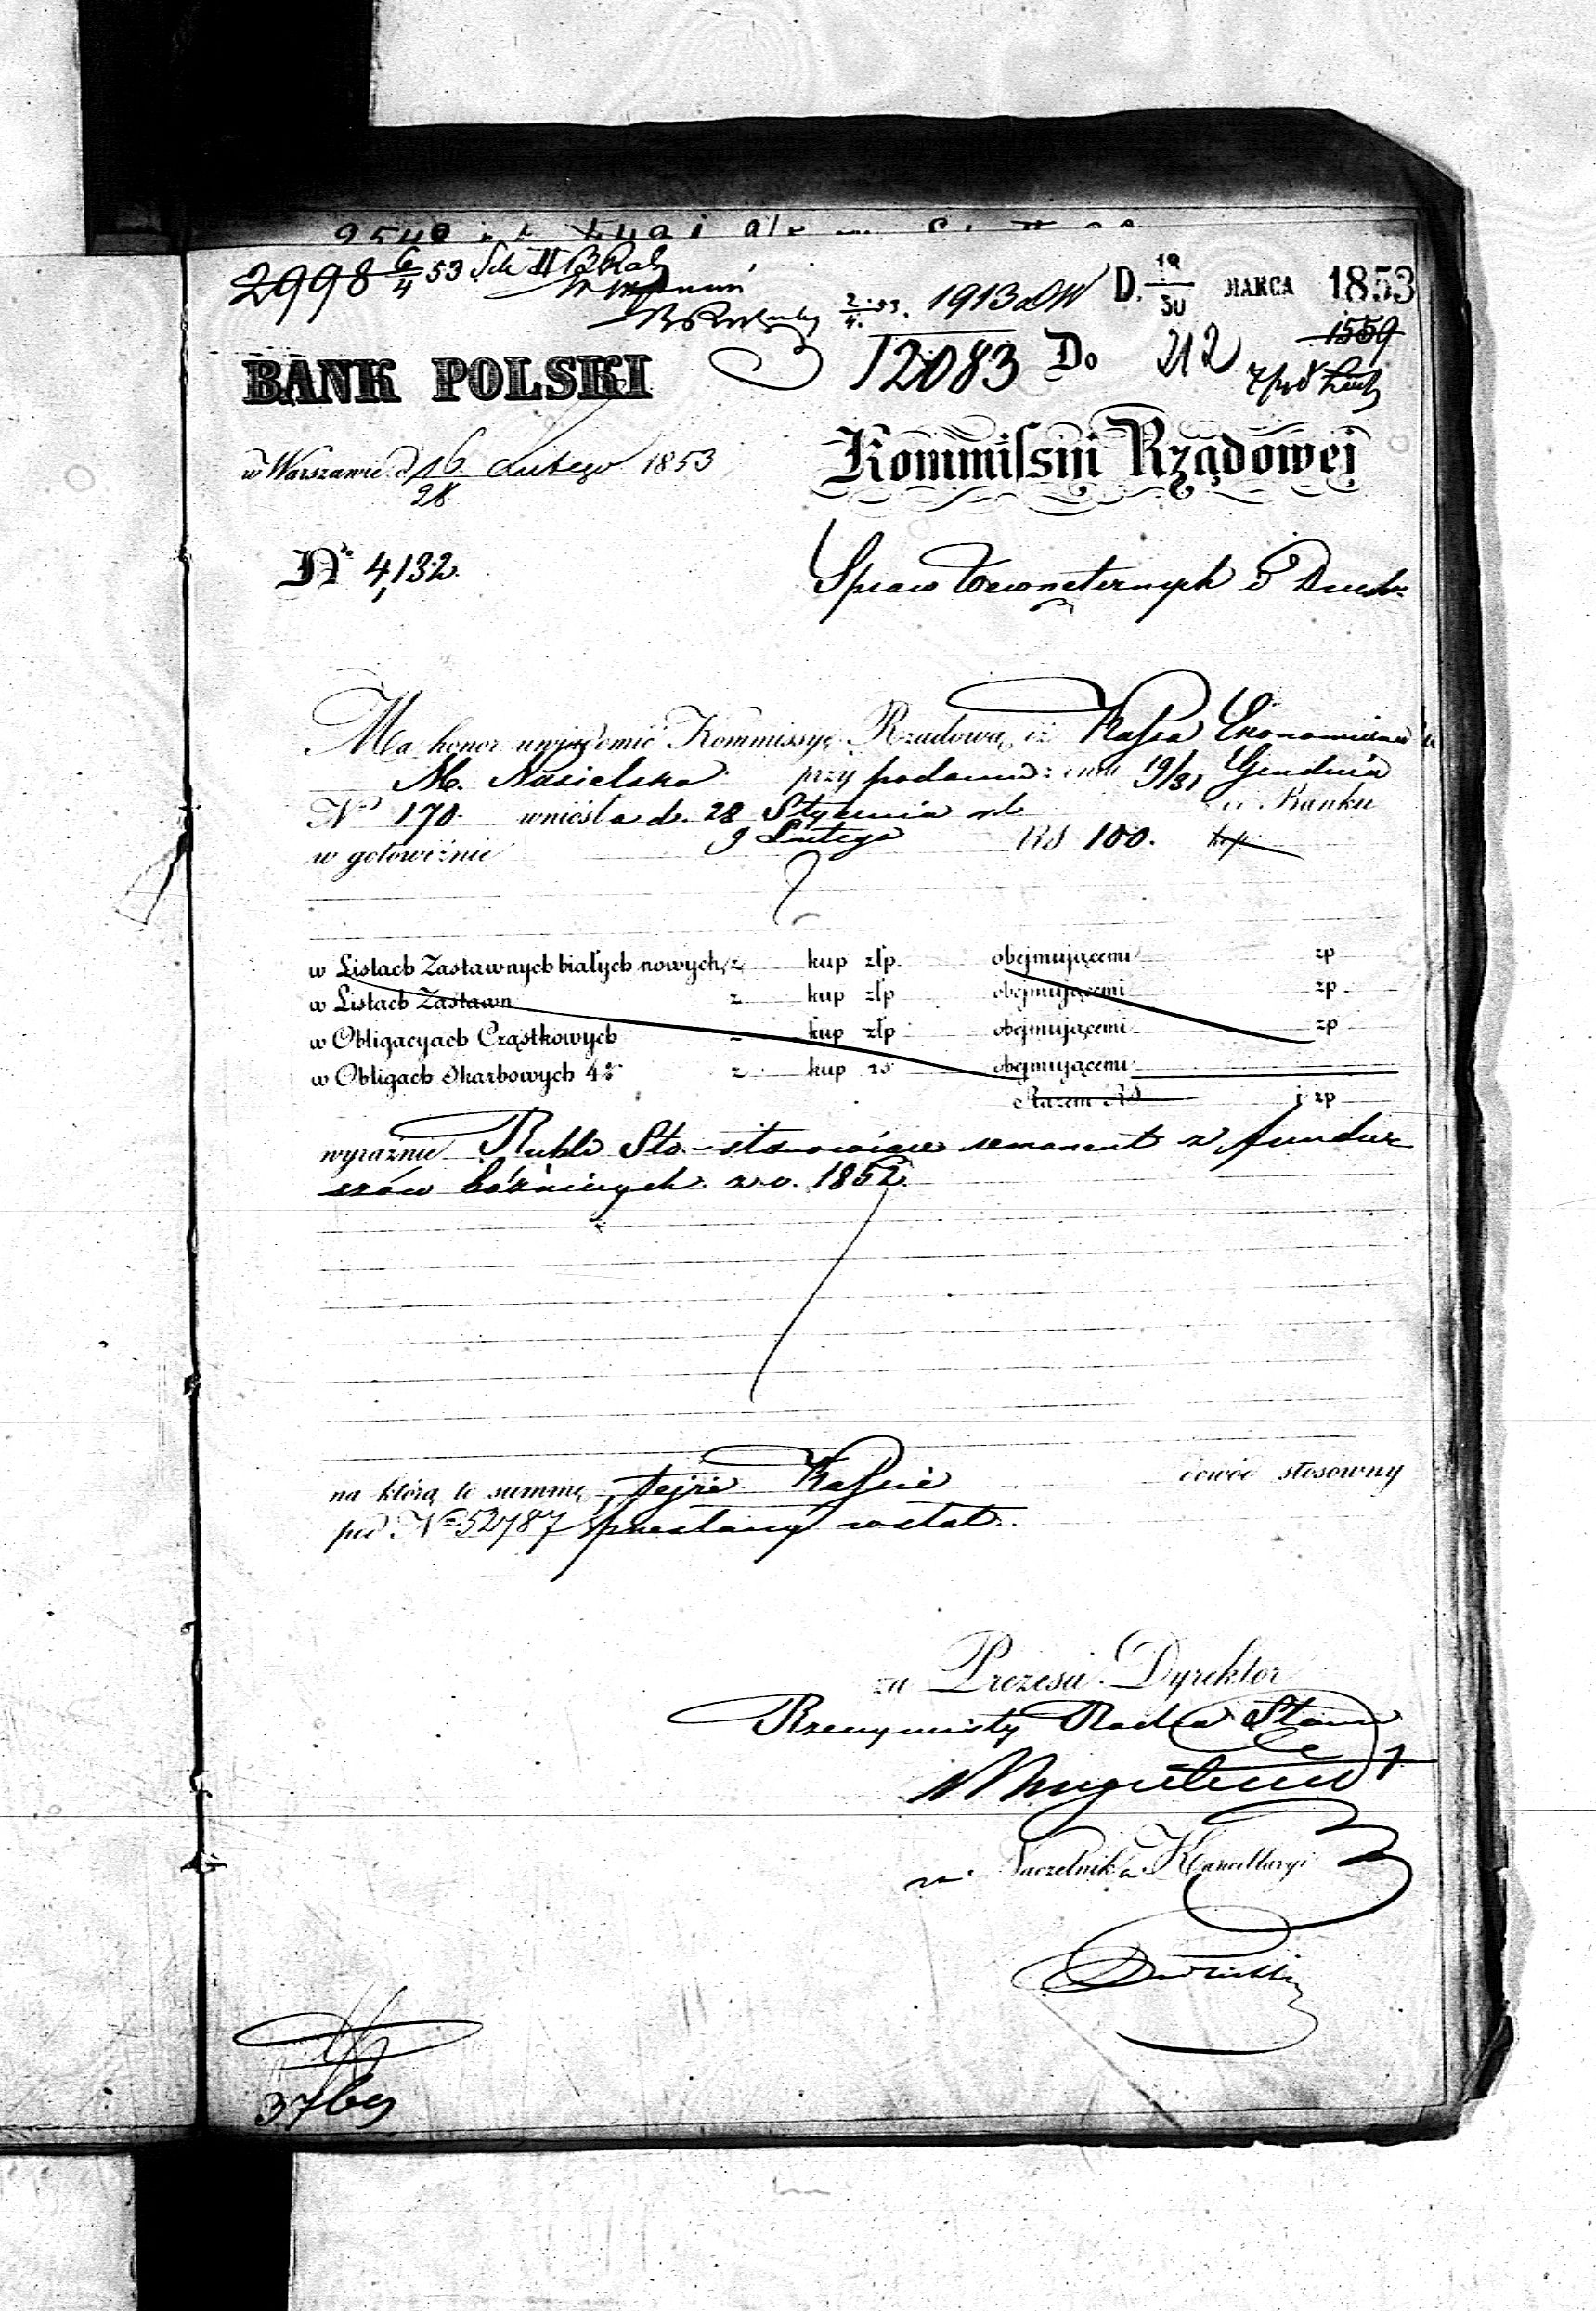 2998 6/4 53
2/4 53. 1913
D. 18/30 MARCA 1853
1559
12083 Do 212
BANK POLSKI
Kommissiji Rządowej
w Warszawie d. 16/28 Lutego 1853
No 4,132.
Spraw Wewnetrznych i Duch:
Ma honor uwiadomić Kommissyę Rządową iż Kassa Ekonomiczna
M. Nasielska przy podaniu z dnia 19/31 Grudnia
No 170 wniosła d. 28 Stycznia rb do Banku
9 Lutego
w gotowiźnie RS 100. kop
w Listach Zastawnych białych nowych z kup złp obejmującemi zp
w Listach Zastawn z kup złp obejmującemi zp
w Obligacyach Cząstkowych z kup złp obejmującemi zp
w Obligach Skarbowych 4% z kup rs obejmującemi
Razem RS i zp
wyraźnie Rubli Sto stanowiące remanent z fundu
szów bóżniczych z r. 1852.
na którą to summę tejże Kassie dowód stosowny
pod No 52787 przesłany został.
za Prezesa Dyrektor
Rzeczywisty Radca Stanu
za Naczelnika Kancellaryi